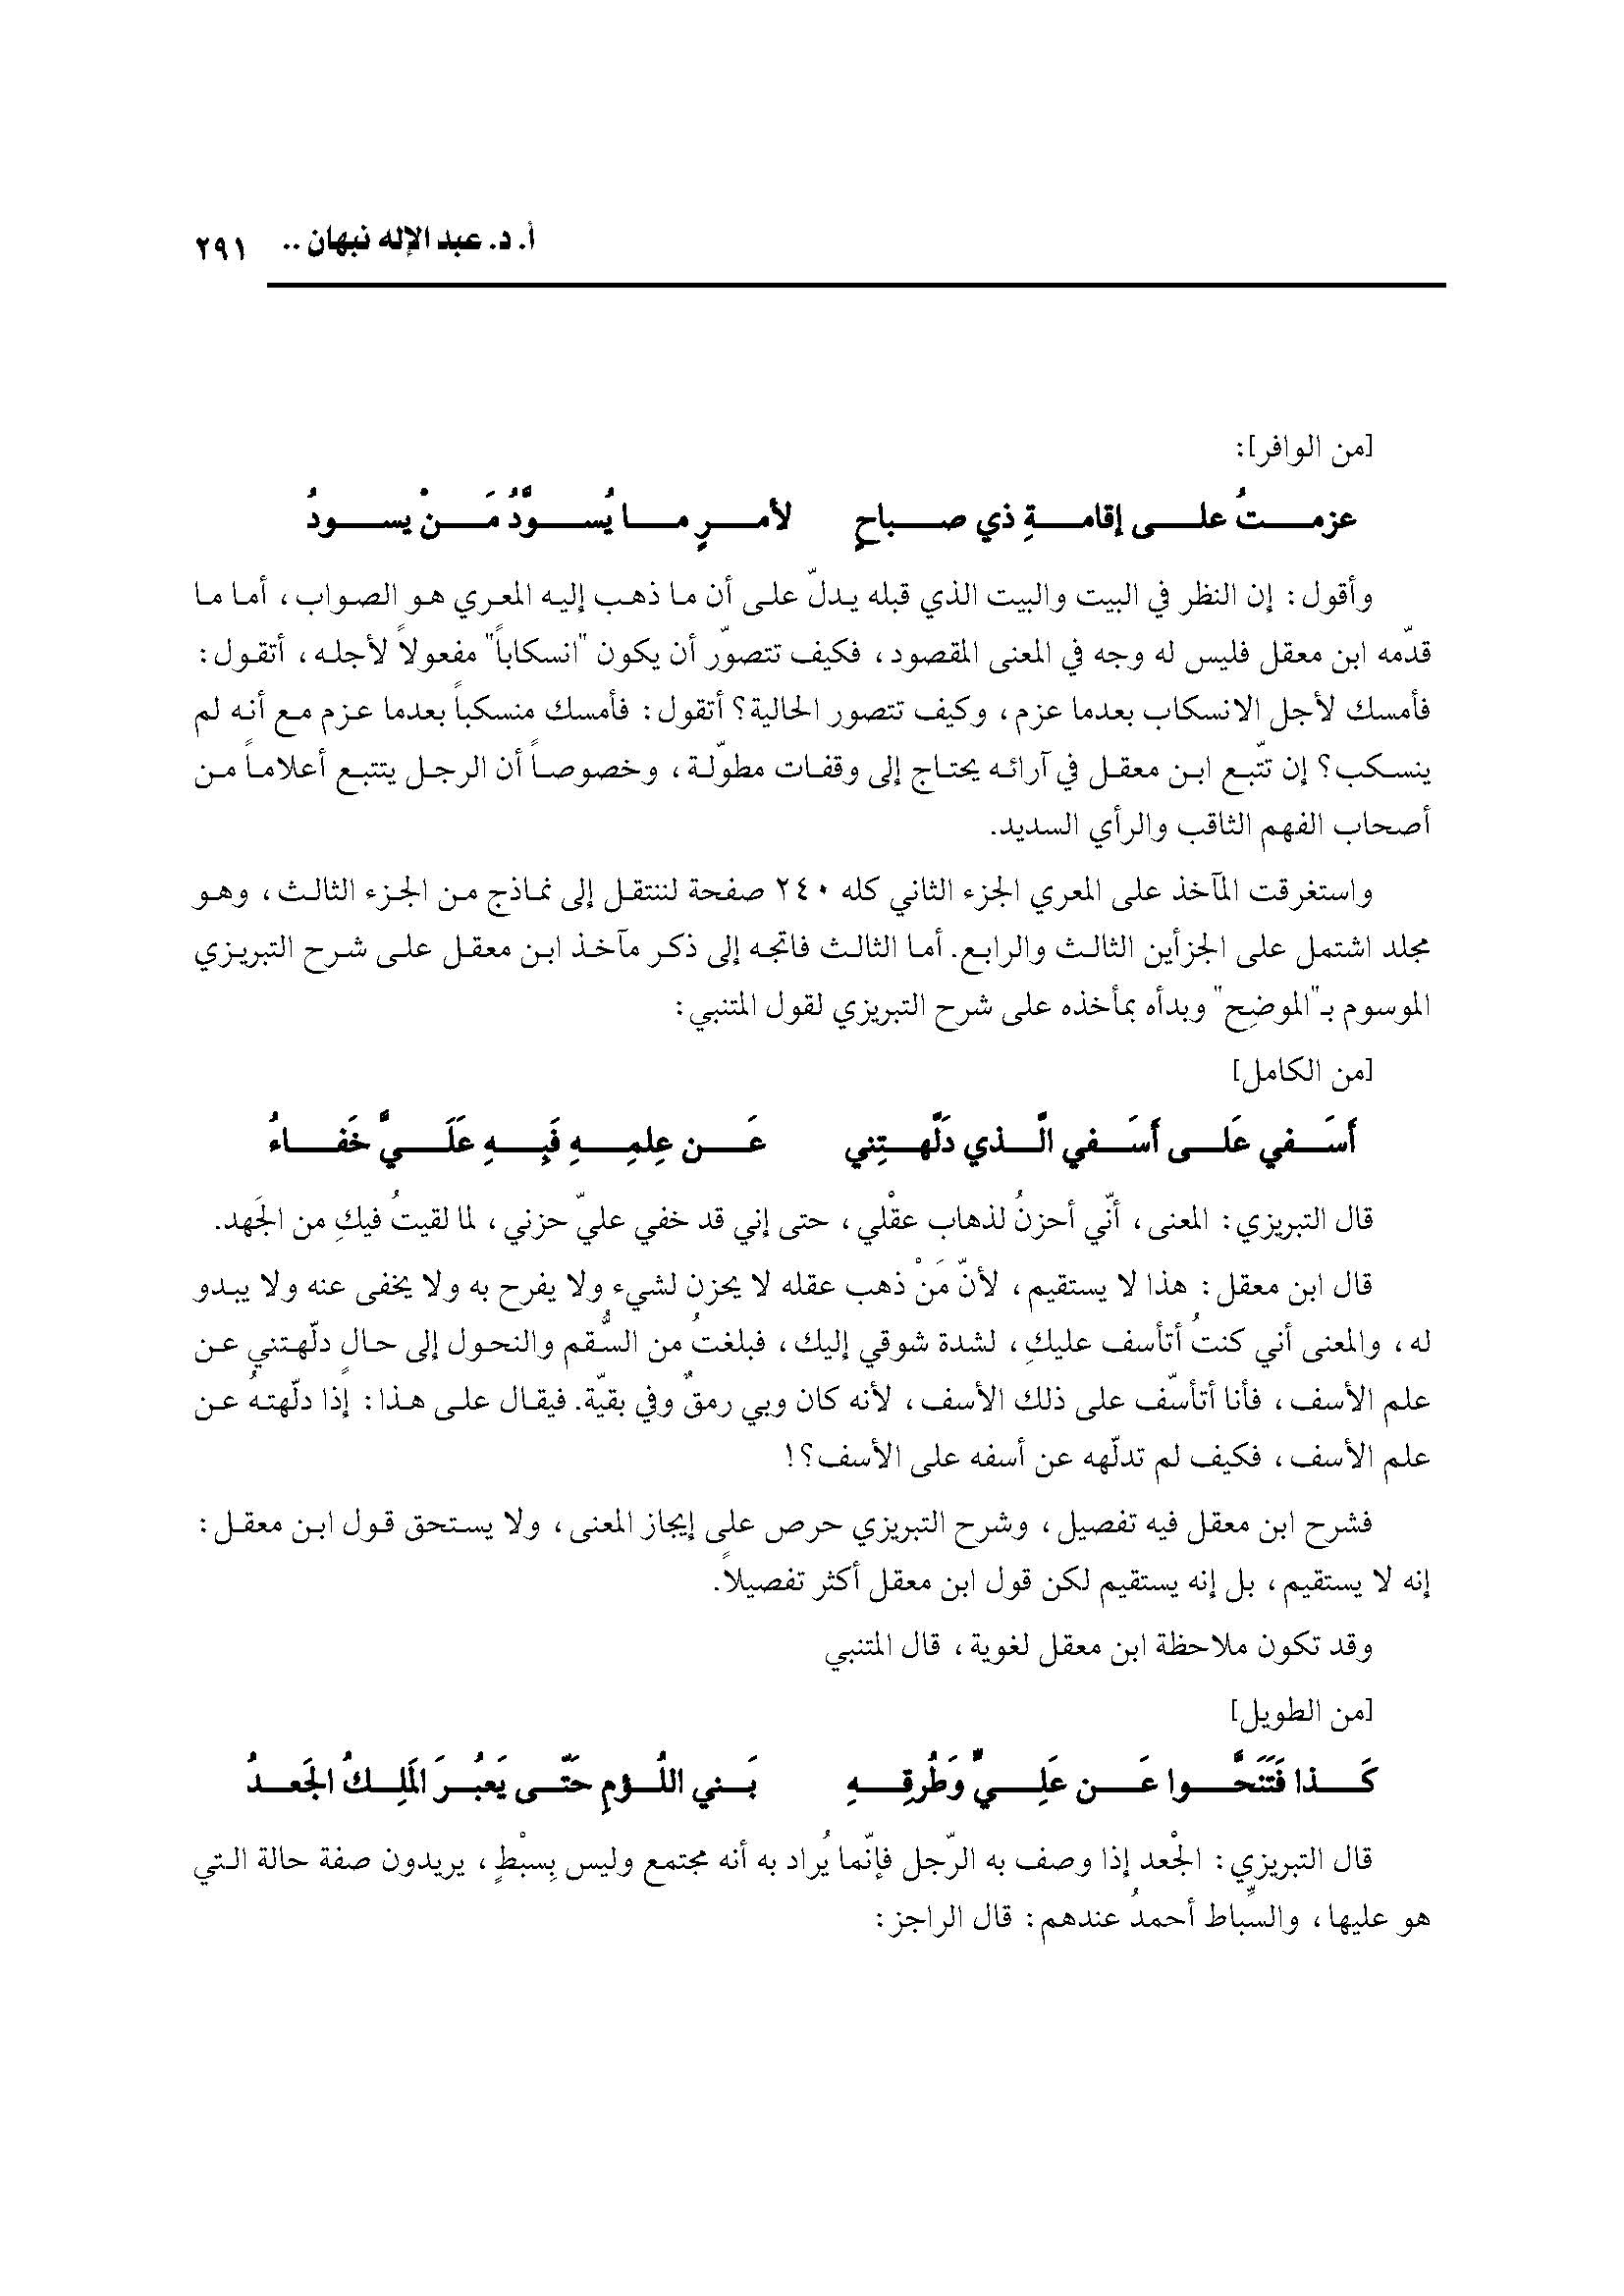 أ. د. عبد الإله نبهان .. ٢٩١
[من الوافر]:
عزمتُ على إقامةِ ذي صباحٍ لأمرٍ ما يُسوَّدُ مَنْ يسودُ
وأقول: إن النظر في البيت والبيت الذي قبله يدلّ على أن ما ذهب إليه المعري هو الصواب، أما ما
قدّمه ابن معقل فليس له وجه في المعنى المقصود، فكيف تتصوّر أن يكون "انسكاباً" مفعولاً لأجله، أتقول:
فأمسك لأجل الانسكاب بعدما عزم، وكيف تتصور الحالية؟ أتقول: فأمسك منسكباً بعدما عزم مع أنه لم
ينسكب؟ إن تتّبع ابن معقل في آرائه يحتاج إلى وقفات مطوّلة، وخصوصاً أن الرجل يتتبع أعلاماً من
أصحاب الفهم الثاقب والرأي السديد.
واستغرقت المآخذ على المعري الجزء الثاني كله ٢٤٠ صفحة لننتقل إلى نماذج من الجزء الثالث، وهو
مجلد اشتمل على الجزأين الثالث والرابع. أما الثالث فاتجه إلى ذكر مآخذ ابن معقل على شرح التبريزي
الموسوم بـ"الموضِح" وبدأه بمأخذه على شرح التبريزي لقول المتنبي:
[من الكامل]
أَسَفي عَلى أَسَفي الَّذي دَلَّهتِني عَن عِلمِهِ فَبِهِ عَلَيَّ خَفاءُ
قال التبريزي: المعنى، أنّي أحزنُ لذهاب عقْلي، حتى إني قد خفي عليّ حزني، لما لقيتُ فيكِ من الجَهد.
قال ابن معقل: هذا لا يستقيم، لأنّ مَنْ ذهب عقله لا يحزن لشيء ولا يفرح به ولا يخفى عنه ولا يبدو
له، والمعنى أني كنتُ أتأسف عليكِ، لشدة شوقي إليك، فبلغتُ من السُّقم والنحول إلى حالٍ دلّهتني عن
علم الأسف، فأنا أتأسّف على ذلك الأسف، لأنه كان وبي رمقٌ وفي بقيّة. فيقال على هذا: إذا دلّهتهُ عن
علم الأسف، فكيف لم تدلّهه عن أسفه على الأسف؟!
فشرح ابن معقل فيه تفصيل، وشرح التبريزي حرص على إيجاز المعنى، ولا يستحق قول ابن معقل:
إنه لا يستقيم، بل إنه يستقيم لكن قول ابن معقل أكثر تفصيلاً.
وقد تكون ملاحظة ابن معقل لغوية، قال المتنبي
[من الطويل]
كَذا فَتَنَحَّوا عَن عَلِيٍّ وَطُرقِهِ بَني اللُؤمِ حَتّى يَعبُرَ المَلِكُ الجَعدُ
قال التبريزي: الجْعد إذا وصف به الرّجل فإنّما يُراد به أنه مجتمع وليس بِسبْطٍ، يريدون صفة حالة التي
هو عليها، والسِّباط أحمدُ عندهم: قال الراجز: